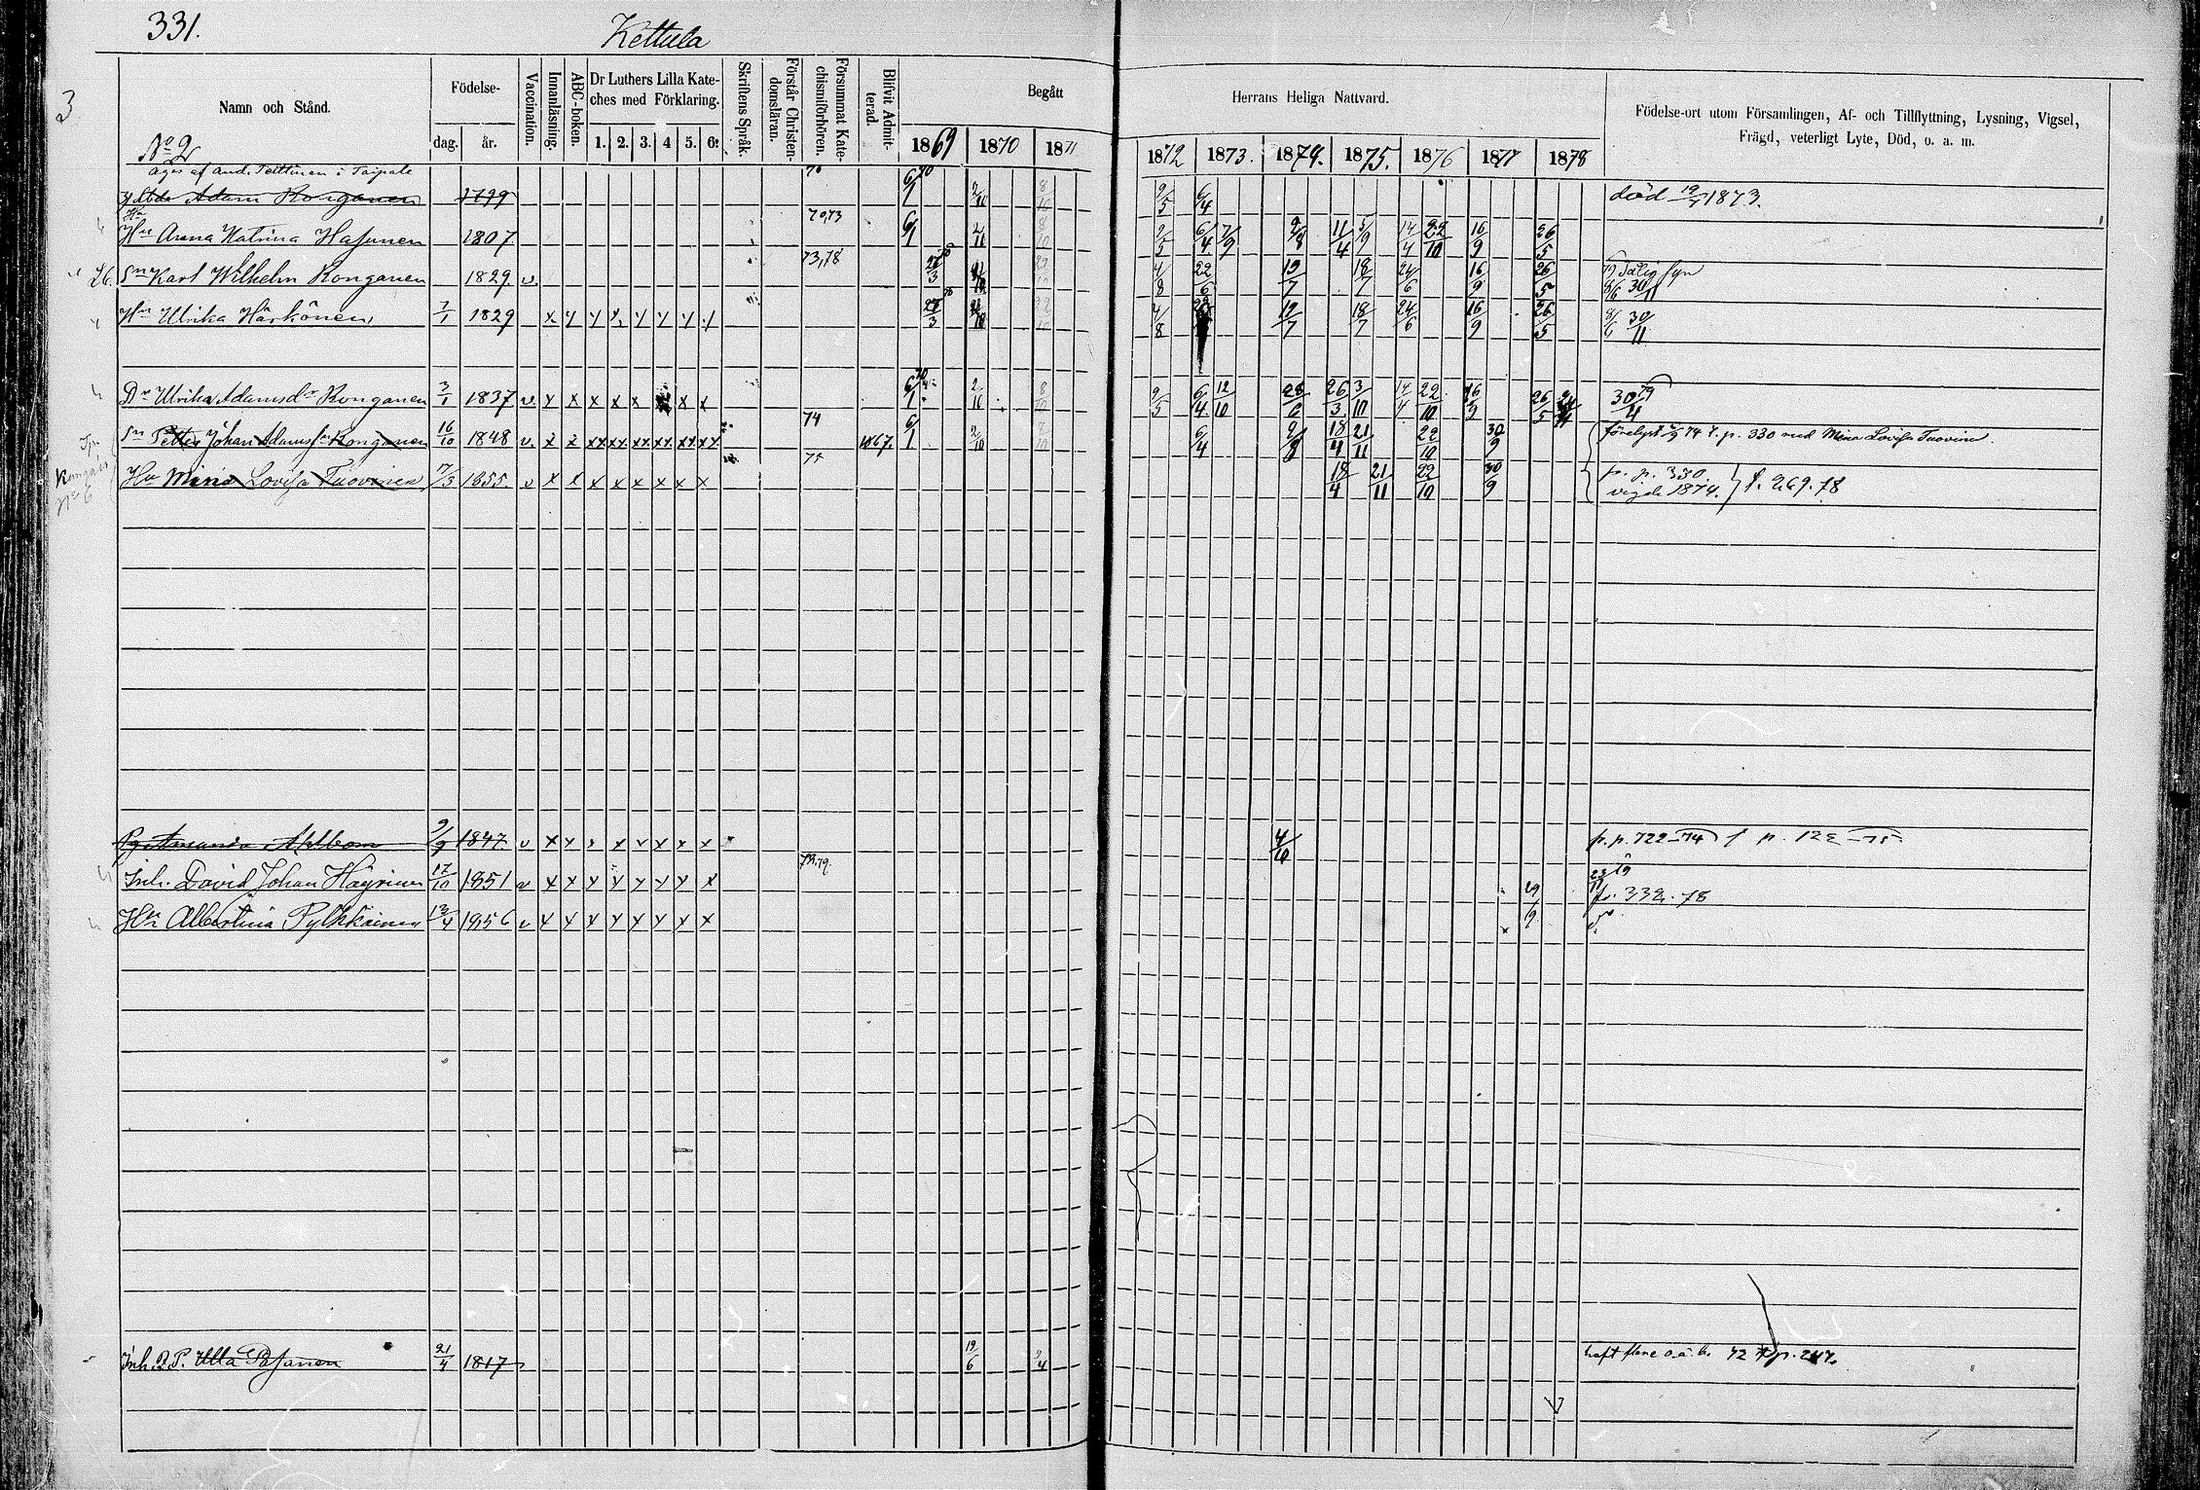 331.
Kettula
3
Namn och Stånd.
Födelse-
dag.
år.
Vaccination.
Innanläsning.
ABC-boken.
Dr Luthers Lilla Kate-
ches med Förklaring.
1. 2. 3. 4 5. 6.
Skriftens Språk.
Förstår Christen-
domsläran.
Försummat Kate-
chismiförhören.
Blifvit Admit-
terad.
Begått
1869 1870 1871
Herrans Heliga Nattvard.
1872 1873. 1874. 1875. 1876 1877 1878
Födelse-ort utom Församlingen, Af- och Tillflyttning, Lysning, Vigsel,
Frägd, veterligt Lyte, Död, o. a. m.
No 2
äges af And. Teittinen i Taipale
Adam Konganen 1799 6/1 2/10 8/10 9/5 6/4 död 1873.
Hu Anna Katrina Hafunen 1807 70,73 6/1 2/11 8/10 9/5 6/4 7/9 2/8 11/4 5/9 14/4 22/10 16/9 26/5
26. Sn Karl Wilhelm Konganen 1829 v. 73,78 4/8 22/6 19/7 18/7 24/6 16/9 26/5 30/11
Hu Ulrika Härkönen 7/1 1829 x y y x y y y y 4/8 19/7 18/7 24/6 16/9 26/5 8/6 30/11
Dr Ulrika Adamsdr Konganen 3/1 1837 v x x x x x x x 6/1 2/11 8/10 9/5 6/4 12/10 28/6 26/3 3/10 14/4 22/10 16/9 26/5 30/4
Sn Petter Johan Adamsson Konganen 16/10 1848 v. x x xx xx xx xx xx xx 74 1867. 6/1 2/10 8/10 6/4 18/4 21/11 22/10 30/9 förelyst 74 t. p. 330 med Mina Lovisa Tuovinen.
Hu Mina Lovisa Tuovinen 17/3 1855. v x x x x x x x x 75 18/4 21/11 22/10 30/9 fr. p. 330.
vigde 1874. } f. 269. 78
Kangas
No 6
Amanda Ahlbom 9/9 1847 v x x x x x x x x 4/10 fr. p. 722-74 f p. 122-75
Inh. David Johan Häyrinen 17/10 1851 v x x x y y y y x 78.79. fr. 332. 78
Hu Albertina Pylkkäinen 13/4 1856 v y y y y y y x x
Inh. Ulla Pasanen 21/4 1817 19/6 haft flere o.ä. b. 72 p. 247.